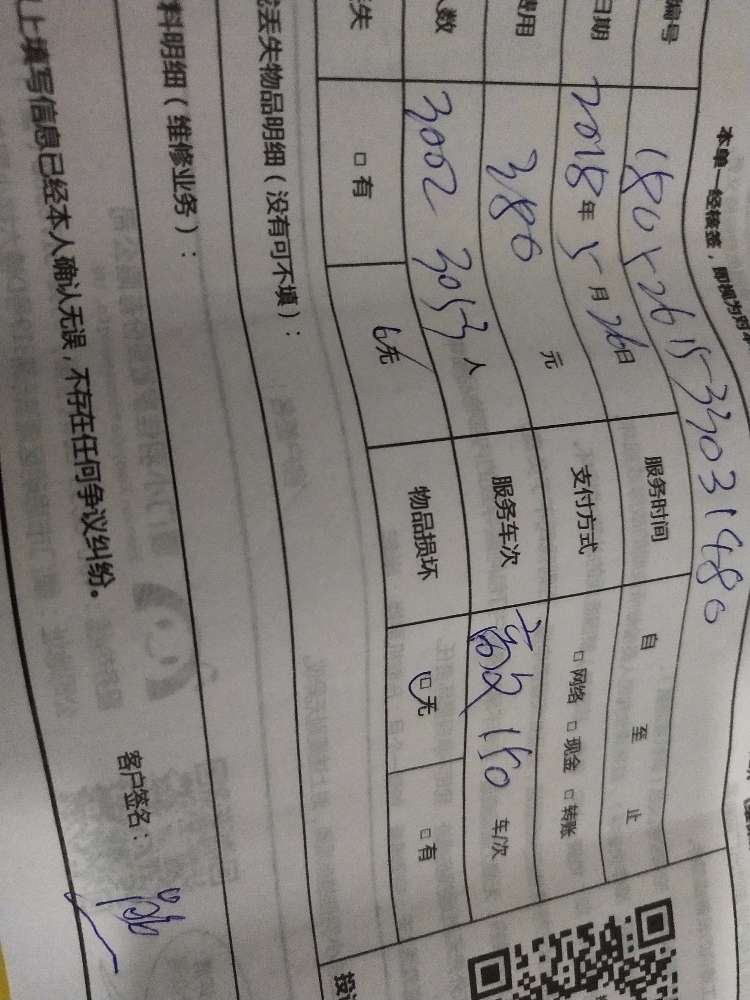 本单一经核签，即视为对本
编号 1805261533031480
日期 2018年5月26日 服务时间 自 至 止
费用 380 元 支付方式 □网络 □现金 □转账
人数 3002 3053 人 服务车次 150 车/次
失 □有 □无 物品损坏 □无 □有
丢失物品明细（没有可不填）：
料明细（维修业务）：
上填写信息已经本人确认无误，不存在任何争议纠纷。
客户签名：
投